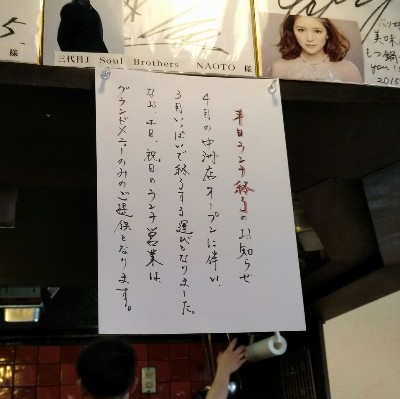 5.
様
三代目J Soul Brothers NAOTO 様
美味し
もつ鍋
you!
2015
平日ランチ終了のお知らせ
4月の中洲店オープンに伴い、
3月いっぱいで終了する運びとなりました。
なお、土日、祝日のランチ営業は、
グランドメニューのみのご提供となります。